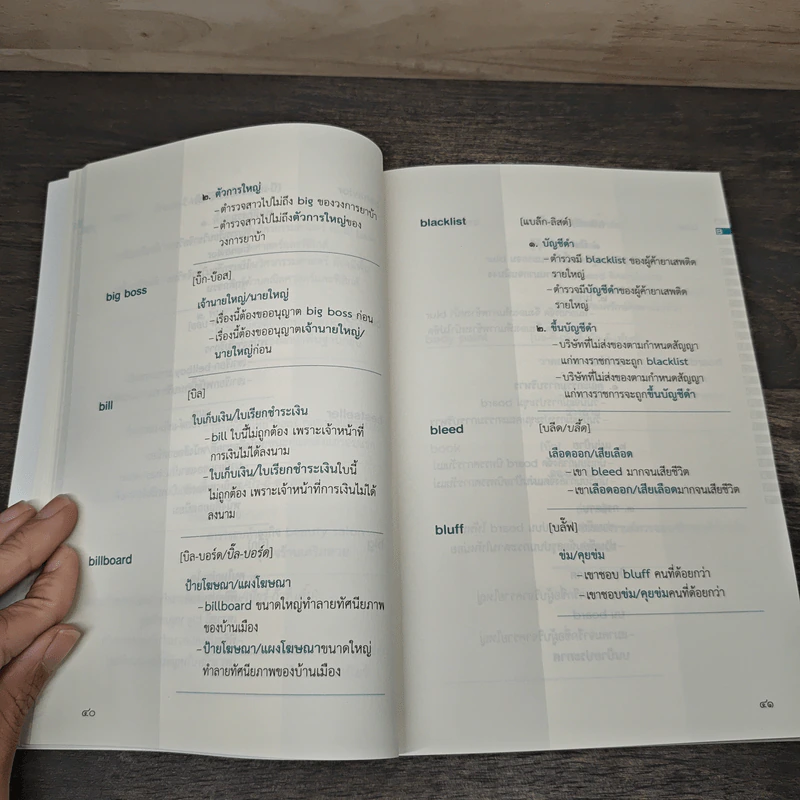 ๒. ตัวการใหญ่
–ตำรวจสาวไปไม่ถึง big ของวงการยาบ้า
–ตำรวจสาวไปไม่ถึงตัวการใหญ่ของ
วงการยาบ้า
big boss
[บิ๊ก-บ๊อส]
เจ้านายใหญ่/นายใหญ่
–เรื่องนี้ต้องขออนุญาต big boss ก่อน
–เรื่องนี้ต้องขออนุญาตเจ้านายใหญ่/
นายใหญ่ก่อน
bill
[บิล]
ใบเก็บเงิน/ใบเรียกชำระเงิน
–bill ใบนี้ไม่ถูกต้อง เพราะเจ้าหน้าที่
การเงินไม่ได้ลงนาม
–ใบเก็บเงิน/ใบเรียกชำระเงินใบนี้
ไม่ถูกต้อง เพราะเจ้าหน้าที่การเงินไม่ได้
ลงนาม
billboard
[บิล-บอร์ด/บิ๊ล-บอร์ด]
ป้ายโฆษณา/แผงโฆษณา
–billboard ขนาดใหญ่ทำลายทัศนียภาพ
ของบ้านเมือง
–ป้ายโฆษณา/แผงโฆษณาขนาดใหญ่
ทำลายทัศนียภาพของบ้านเมือง
๔๐
blacklist
[แบล๊ก-ลิสต์]
๑. บัญชีดำ
–ตำรวจมี blacklist ของผู้ค้ายาเสพติด
รายใหญ่
–ตำรวจมีบัญชีดำของผู้ค้ายาเสพติด
รายใหญ่
๒. ขึ้นบัญชีดำ
–บริษัทที่ไม่ส่งของตามกำหนดสัญญา
แก่ทางราชการจะถูก blacklist
–บริษัทที่ไม่ส่งของตามกำหนดสัญญา
แก่ทางราชการจะถูกขึ้นบัญชีดำ
bleed
[บลีด/บลี้ด]
เลือดออก/เสียเลือด
–เขา bleed มากจนเสียชีวิต
–เขาเลือดออก/เสียเลือดมากจนเสียชีวิต
bluff
[บลั๊ฟ]
ข่ม/คุยข่ม
–เขาชอบ bluff คนที่ด้อยกว่า
–เขาชอบข่ม/คุยข่มคนที่ด้อยกว่า
๔๑